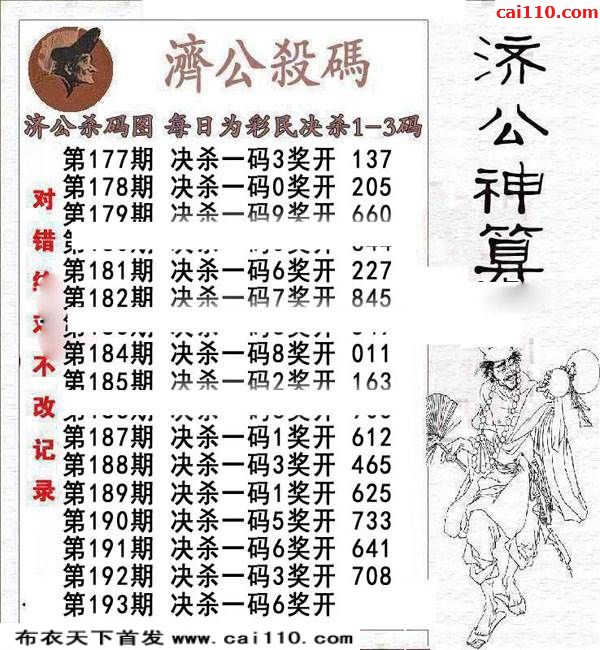 cai110.com
濟公殺碼
济公神算
济公杀码图 每日为彩民决杀1-3码
对错绝对不改记录
第177期 决杀一码3奖开 137
第178期 决杀一码0奖开 205
第179期 决杀一码9奖开 660
第181期 决杀一码6奖开 227
第182期 决杀一码7奖开 845
第184期 决杀一码8奖开 011
第185期 决杀一码2奖开 163
第187期 决杀一码1奖开 612
第188期 决杀一码3奖开 465
第189期 决杀一码1奖开 625
第190期 决杀一码5奖开 733
第191期 决杀一码6奖开 641
第192期 决杀一码3奖开 708
第193期 决杀一码6奖开
布衣天下首发 www.cai110.com